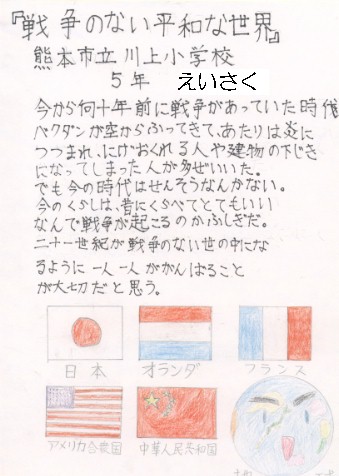 『戦争のない平和な世界』
熊本市立川上小学校
5年 えいさく
今から何十年前に戦争があっていた時代
バクダンが空からふってきて、あたりは炎に
つつまれ、にげおくれる人や建物の下じき
になってしまった人が多ぜいいた。
でも今の時代はせんそうなんかない。
今のくらしは、昔にくらべてとてもいい
なんで戦争が起こるのかふしぎだ。
二十一世紀が戦争のない世の中にな
るように一人一人ががんばること
が大切だと思う。
日本 オランダ フランス
アメリカ合衆国 中華人民共和国